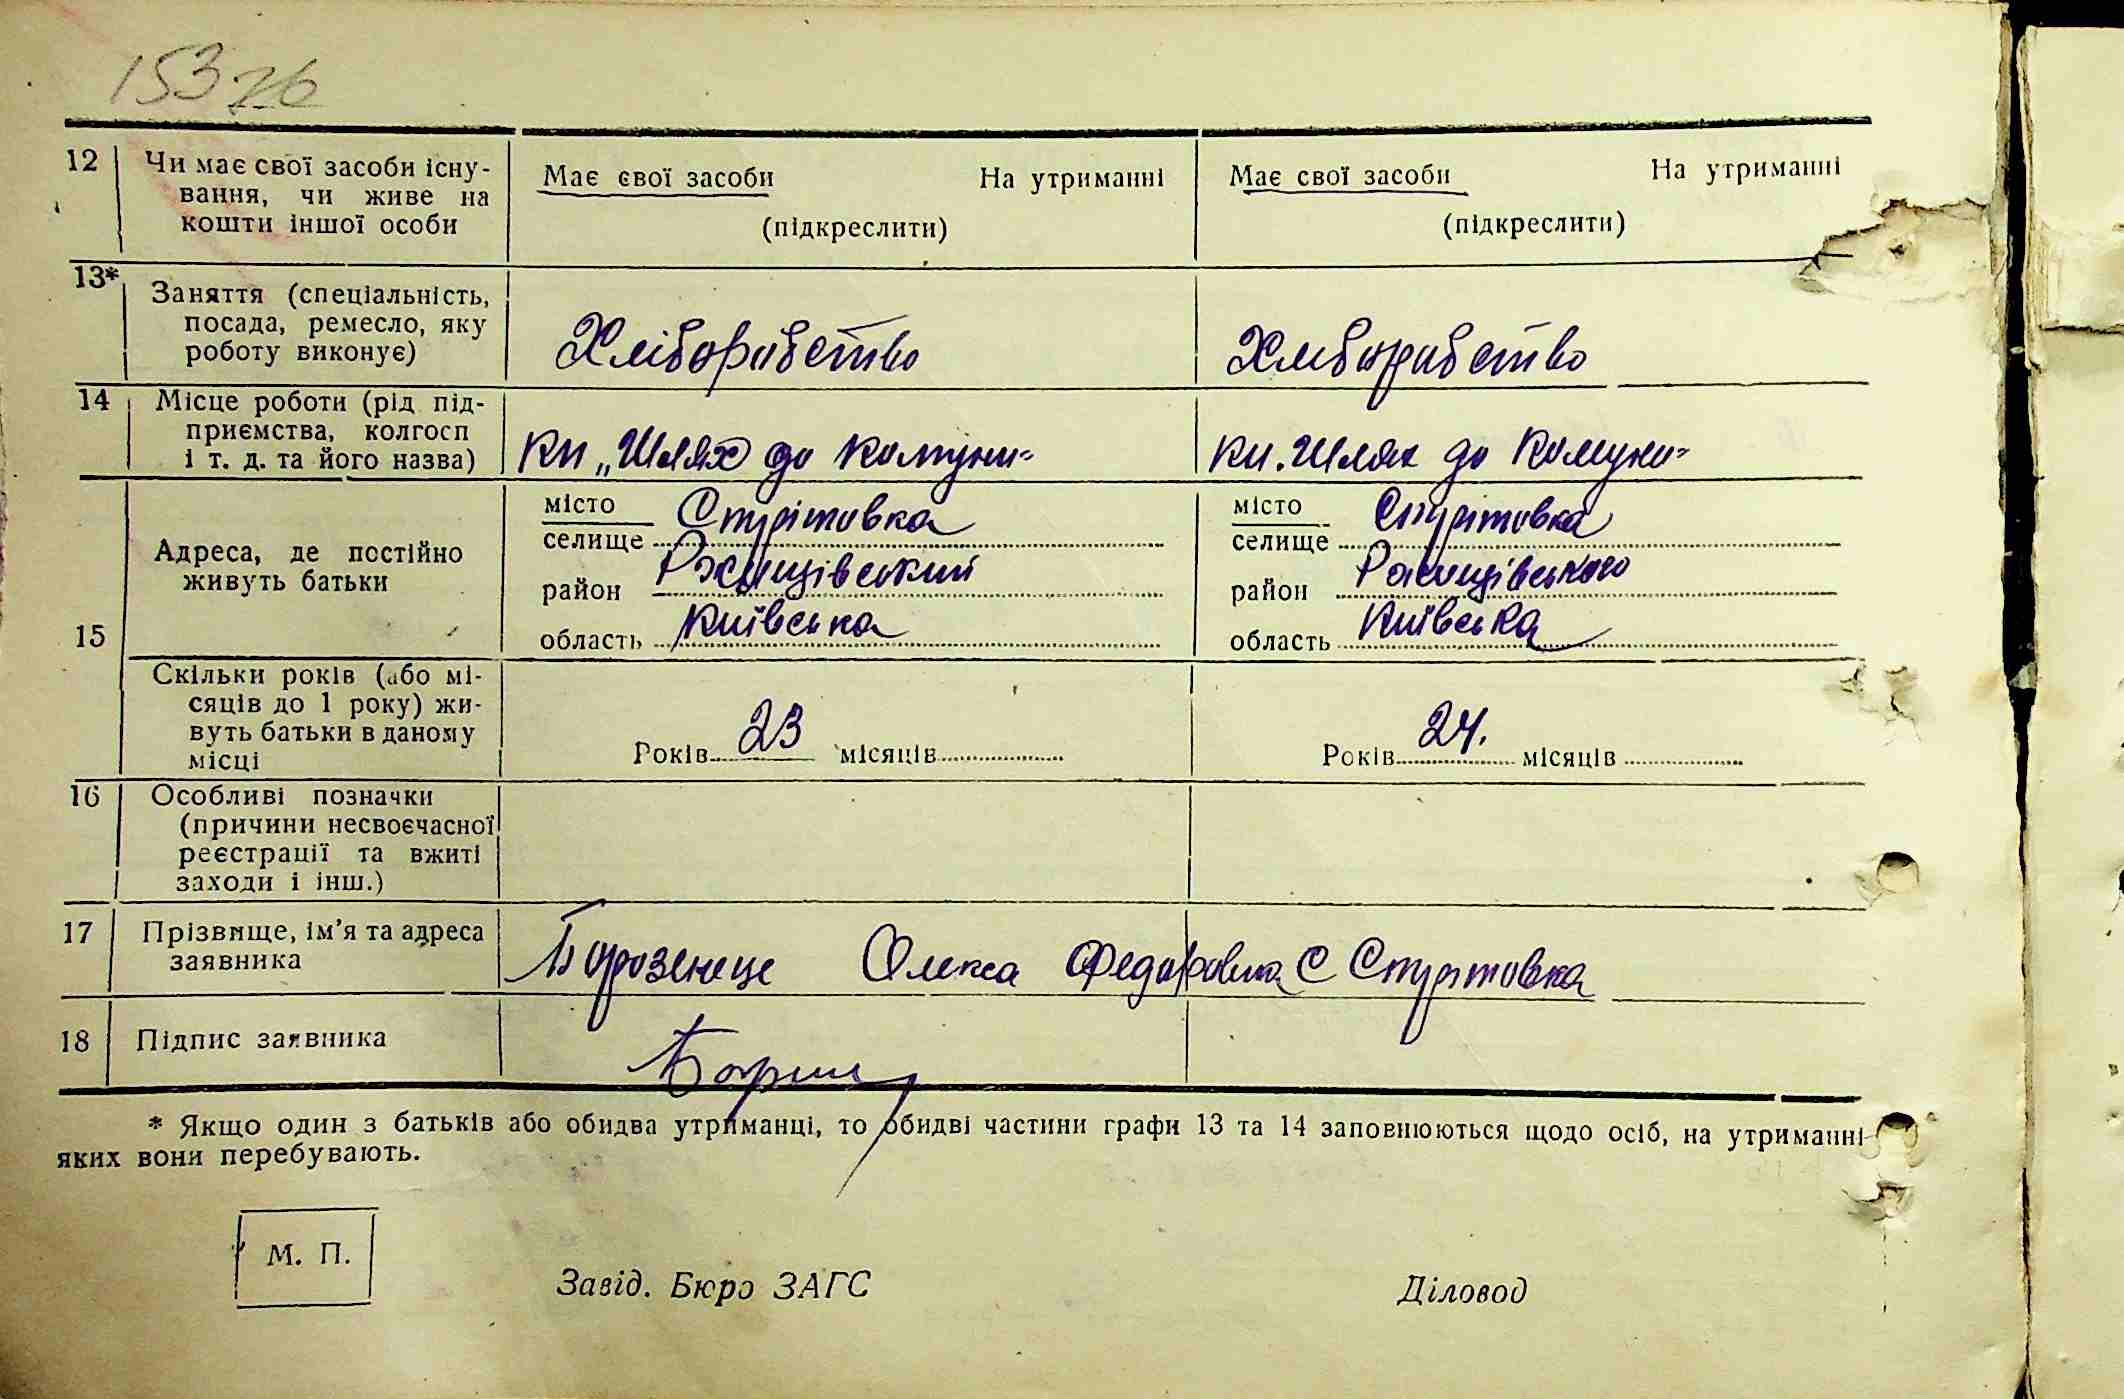 153 зв
12 Чи має свої засоби існу-
вання, чи живе на
кошти іншої особи
Має свої засоби На утриманні
(підкреслити)
Має свої засоби На утриманні
(підкреслити)
13* Заняття (спеціальність,
посада, ремесло, яку
роботу виконує)
Хліборобство
Хліборобство
14 Місце роботи (рід під-
приємства, колгосп
і т. д. та його назва)
кп „Шлях до комуни"
кп. Шлях до комуни"
15 Адреса, де постійно
живуть батьки
місто
селище Стритовка
район Ржищівський
область Київська
місто
селище Стритовка
район Ржищівського
область Київська
Скільки років (або мі-
сяців до 1 року) жи-
вуть батьки в даному
місці
Років 23 місяців
Років 24. місяців
16 Особливі позначки
(причини несвоєчасної
реєстрації та вжиті
заходи і інш.)
17 Прізвище, ім'я та адреса
заявника
Борозенець Олекса Федорович С Стритовка
18 Підпис заявника
* Якщо один з батьків або обидва утриманці, то обидві частини графи 13 та 14 заповнюються щодо осіб, на утриманні
яких вони перебувають.
М. П.
Завід. Бюро ЗАГС
Діловод